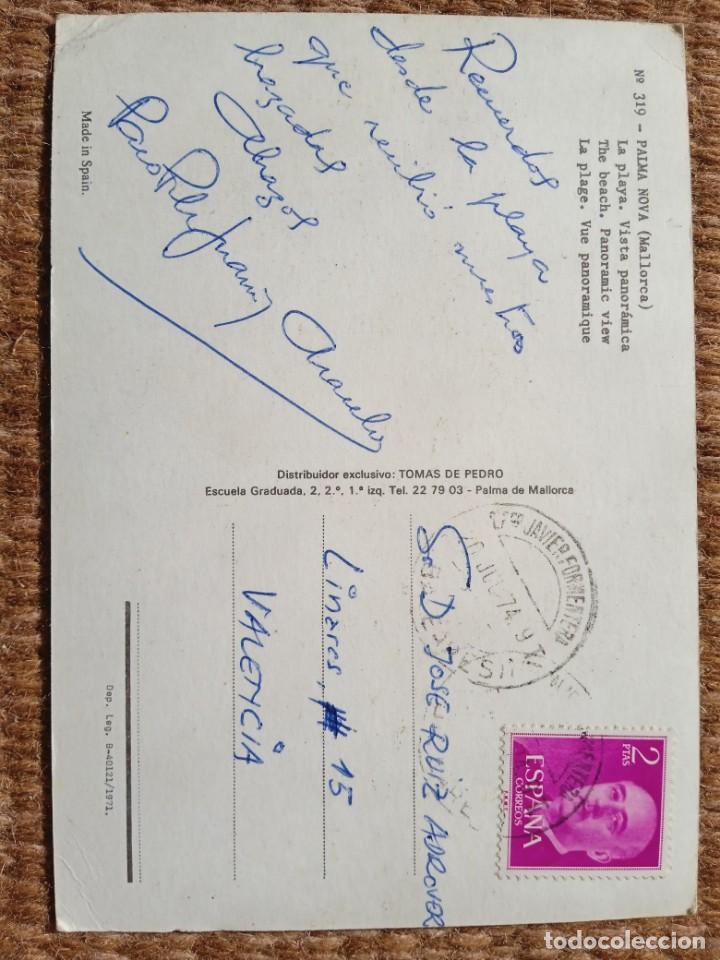 Nº 319 - PALMA NOVA (Mallorca)
La playa. Vista panorámica
The beach. Panoramic view
La plage. Vue panoramique
Recuerdos
desde la playa
que recibió nuestras
brazadas
Abrazos
Made in Spain.
Distribuidor exclusivo: TOMAS DE PEDRO
Escuela Graduada, 2, 2.º, 1.ª izq. Tel. 22 79 03 - Palma de Mallorca
JAVIER FORMENTERA
JUL 74
2
PTAS
ESPAÑA
CORREOS
Sr. D. JOSE RUIZ ADROVER
Linares, 15
VALENCIA
Dep. Leg. B-40121/1971.
todocoleccion